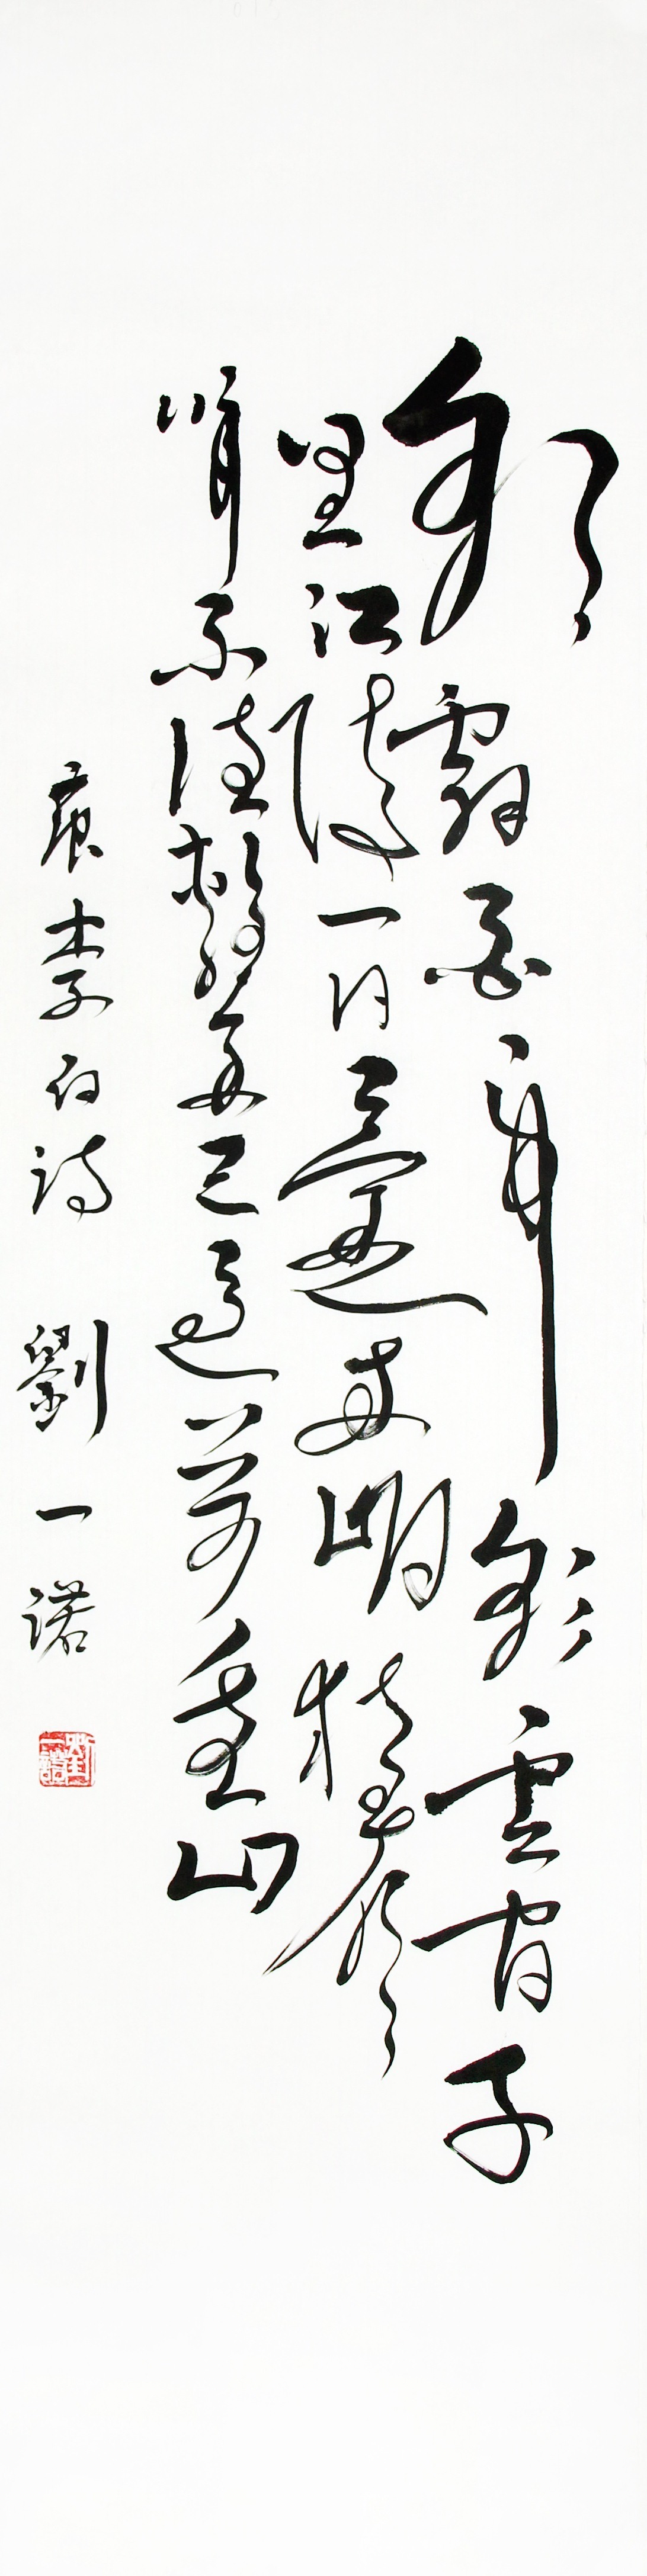 朝辭白帝彩雲間千
里江陵一日還兩岸猿聲
啼不住輕舟已過萬重山
唐李白詩 劉一諾